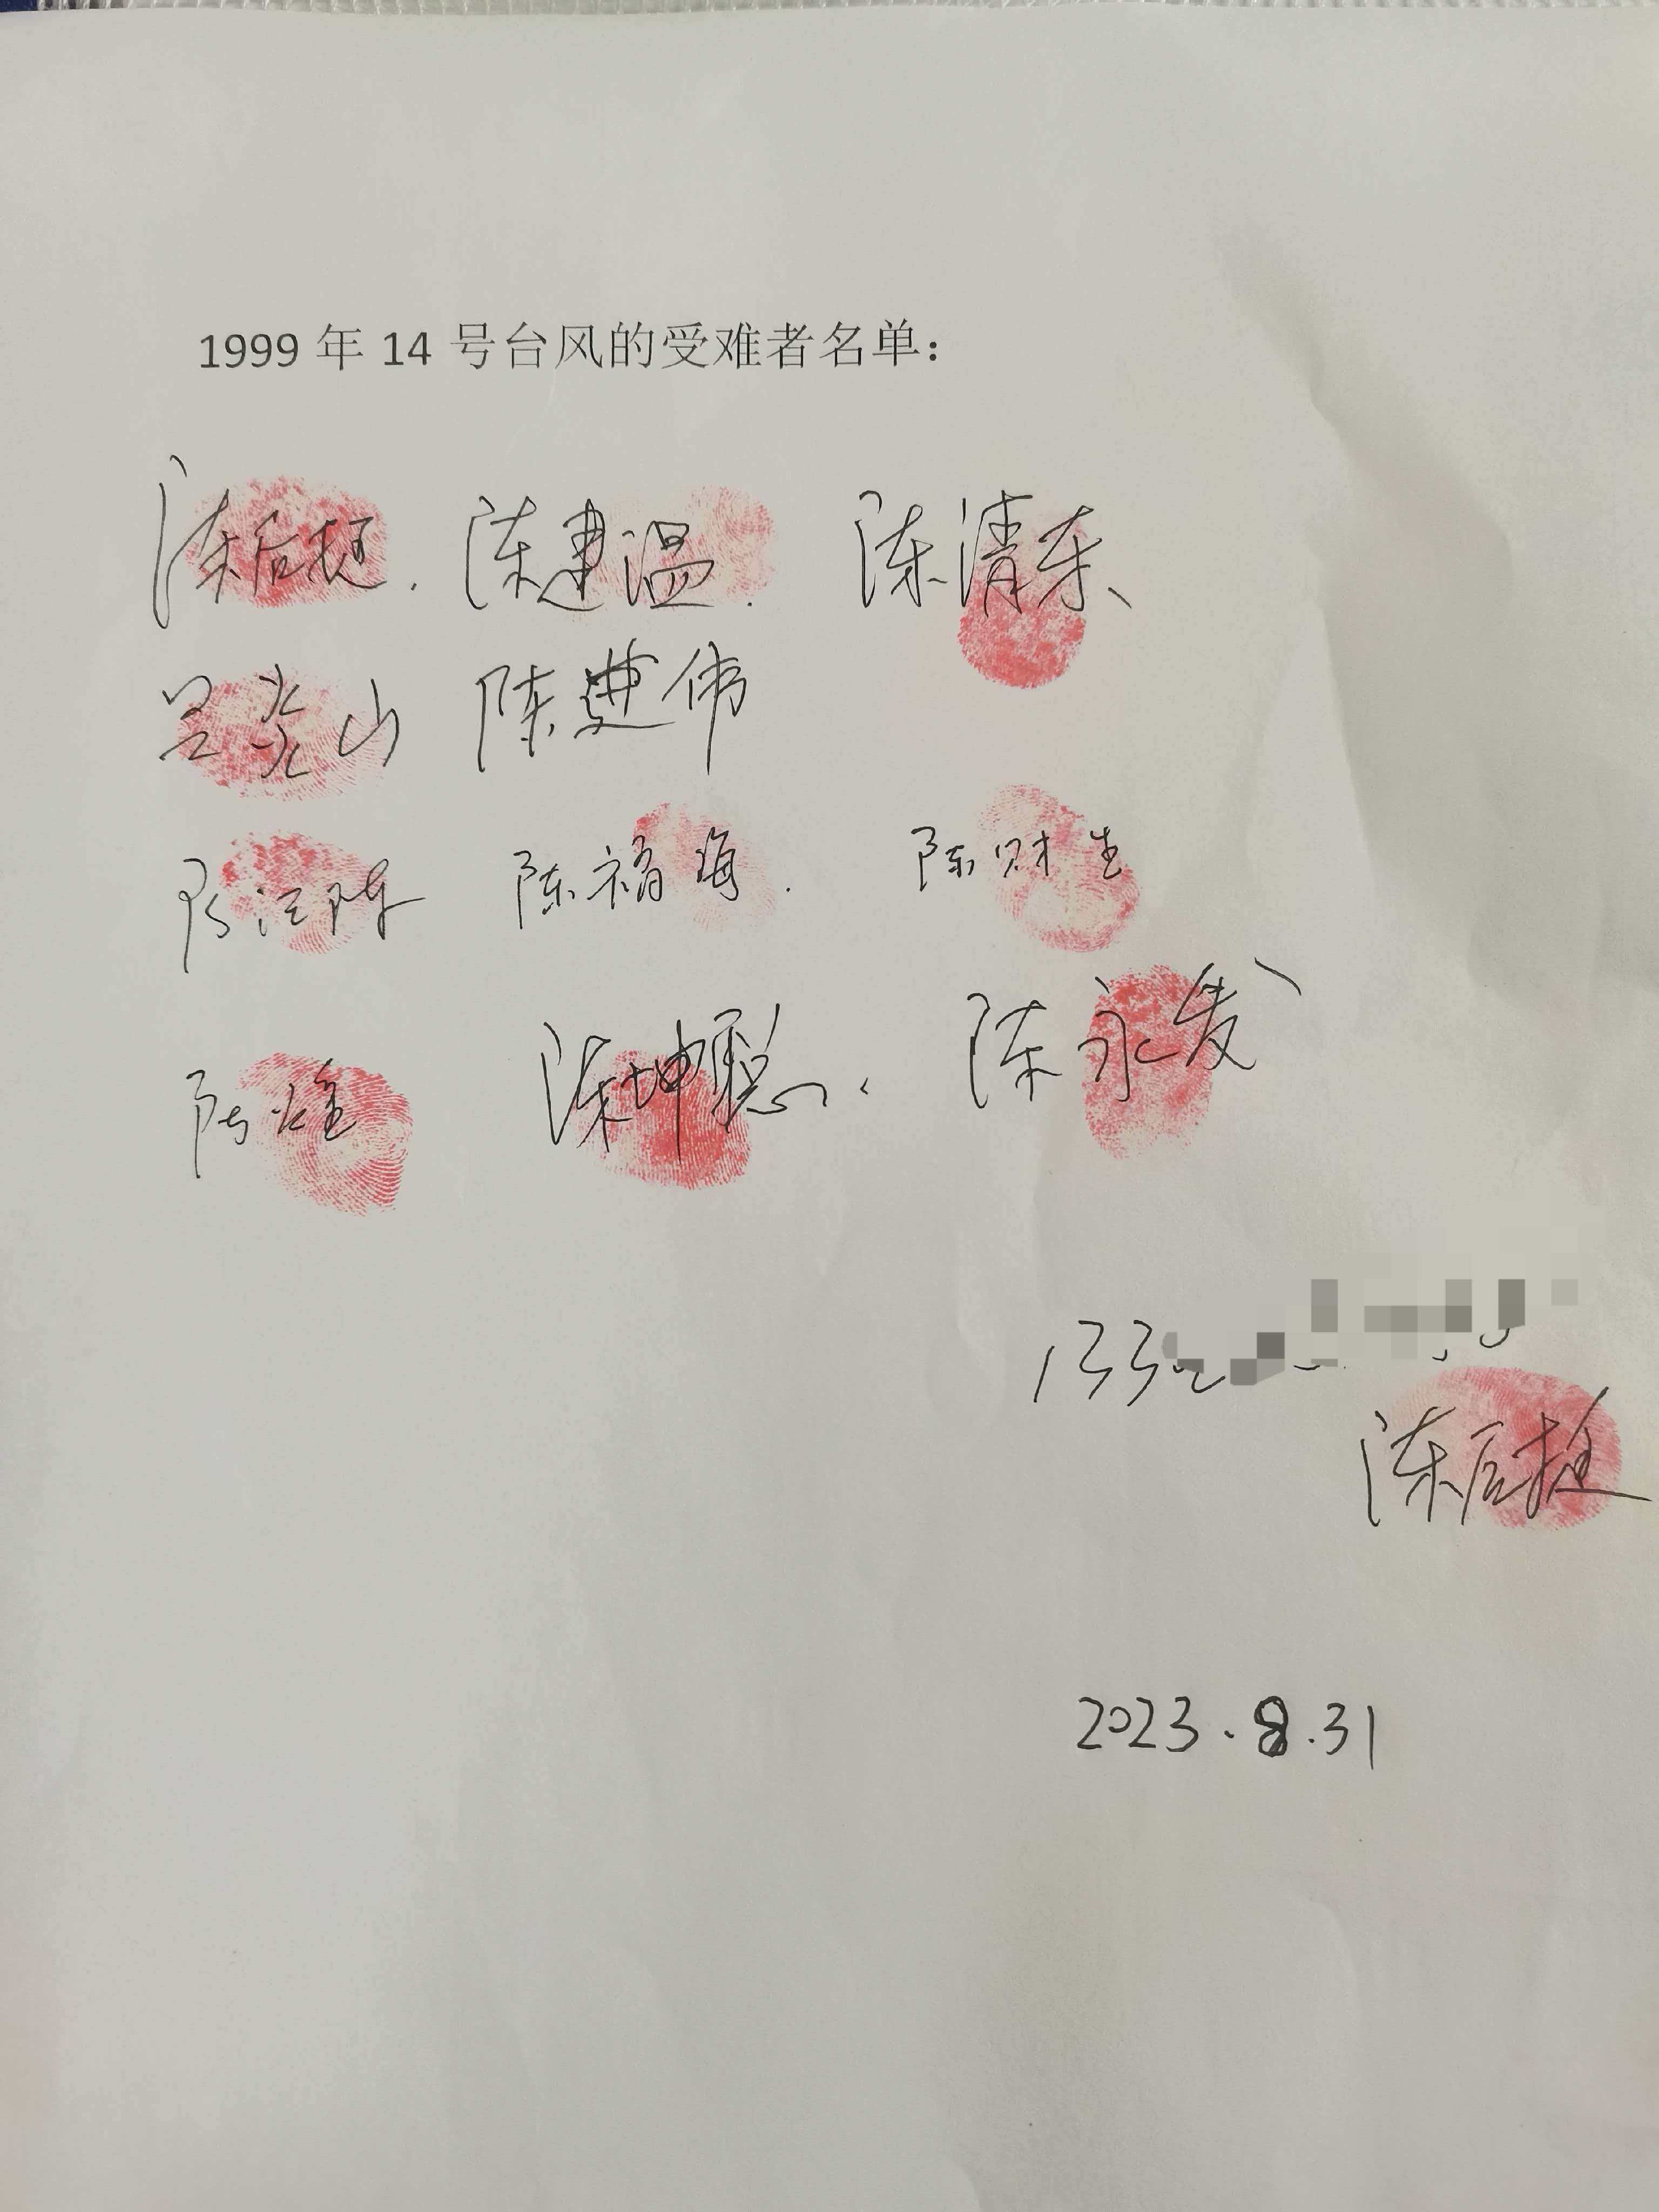 1999 年 14 号台风的受难者名单：
陈后挺. 陈建温. 陈清东、
吕炎山 陈建伟
陈江陈 陈福海. 陈财生
陈雄 陈坤聪、. 陈永发
133
陈后挺
2023.8.31